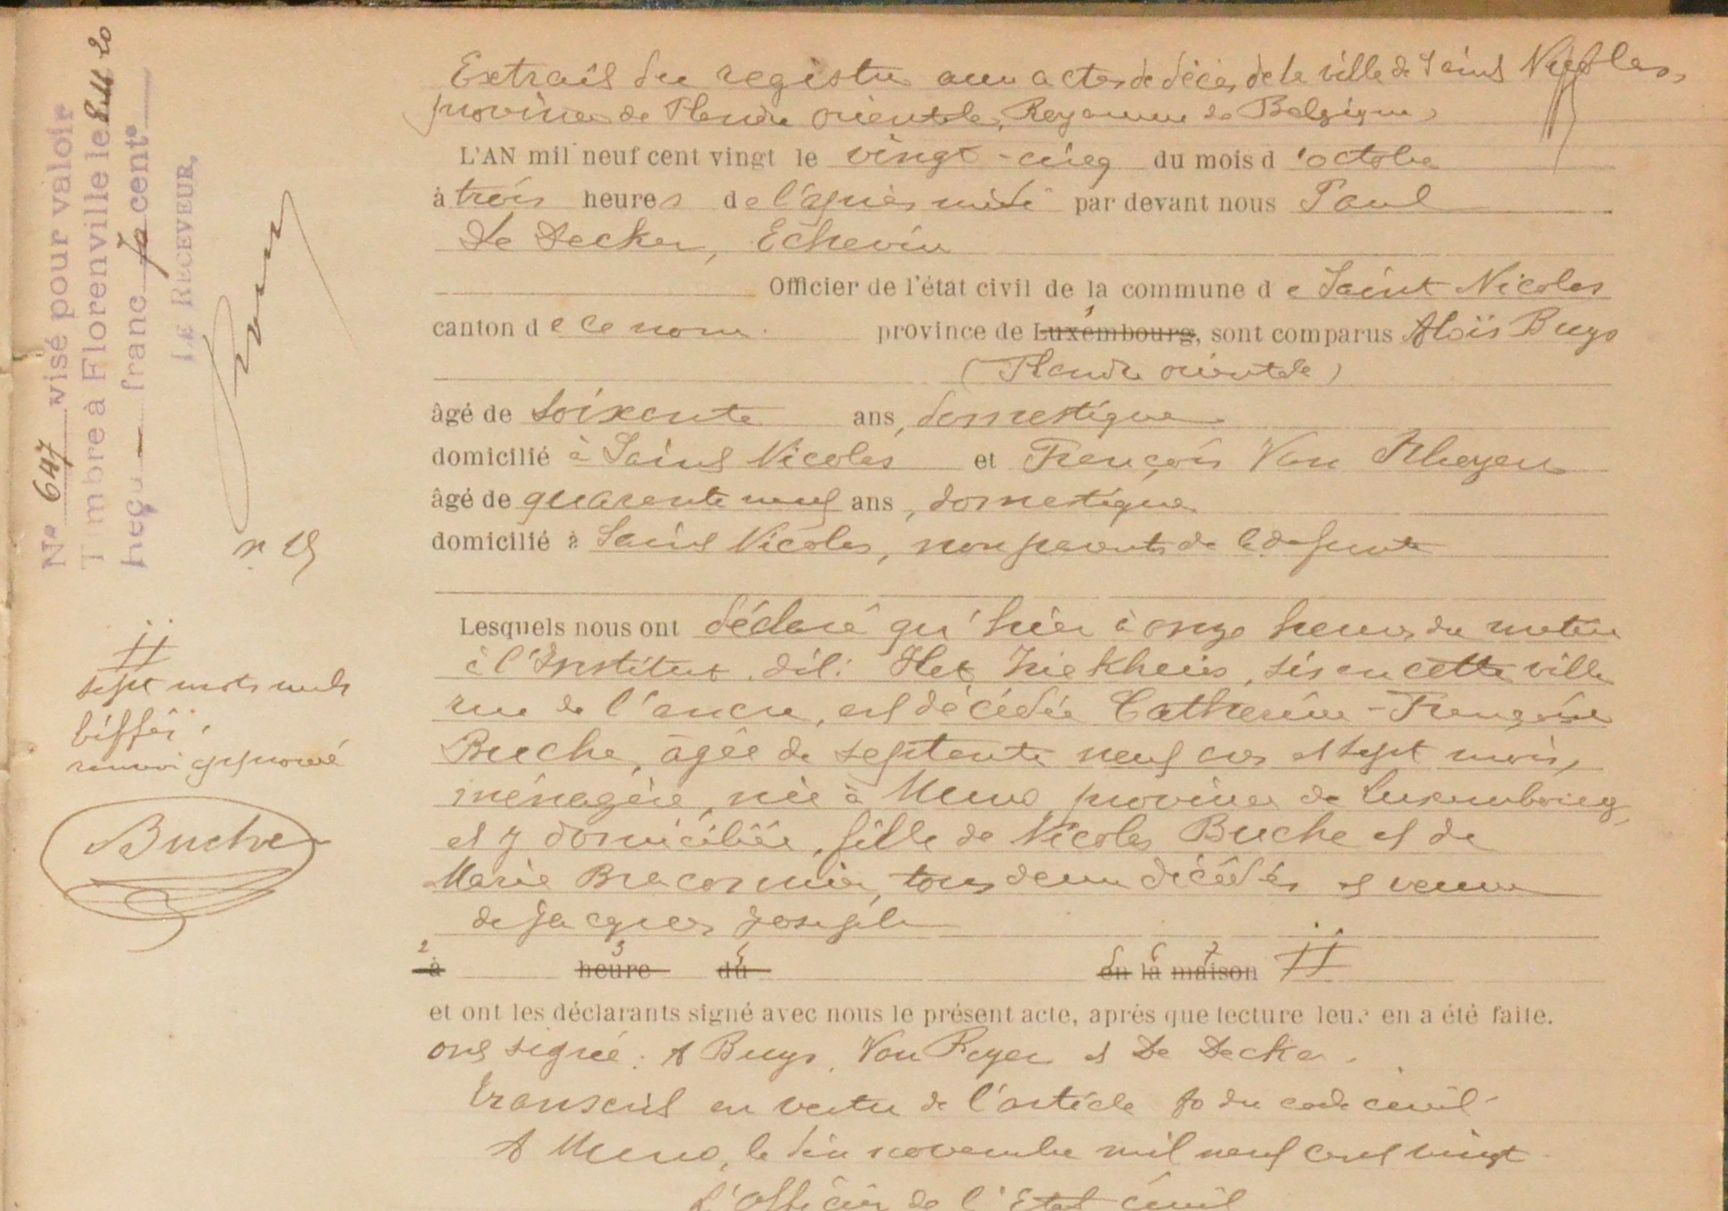 Extrait du registre aux actes de décès de la ville de Saint Nicolas,
province de Flandre orientale, Royaume de Belgique
L'AN mil neuf cent vingt le vingt-cinq du mois d'octobre
à trois heures de l'après midi par devant nous Paul
De Decker, Echevin
Officier de l'état civil de la commune de Saint Nicolas
canton de ce nom. province de Luxembourg, sont comparus Aloïs Buys
(Flandre orientale)
âgé de soixante ans, domestique
domicilié à Saint Nicolas et François Van Rheyen
âgé de quarante neuf ans, domestique
domicilié à Saint Nicolas, non parents de la défunte
Lesquels nous ont déclaré qu'hier à onze heures du matin
à l'Institut dit: Het Ziekhuis, sis en cette ville
rue de l'ancre, est décédée Catherine-Françoise
Buche, âgée de septante neuf ans et sept mois,
ménagère, née à Muno, province de Luxembourg,
et y domiciliée, fille de Nicolas Buche et de
Marie Braconnier, tous deux décédés et veuve
de Jacques Joseph
2 3 4 5 6 7
à heure du en la maison #
et ont les déclarants signé avec nous le présent acte, après que lecture leur en a été faite.
ont signé: A Buys, Van Reyen et De Decker.
Transcrit en vertu de l'article 80 du code civil
A Muno, le dix novembre mil neuf cent vingt
L'Officier de l'Etat civil
N° 647 visé pour valoir
Timbre à Florenville le 20
Reçu — franc 70 cent
LE RECEVEUR,
n 19
#
sept mots nuls
biffés.
renvoi approuvé
Buche